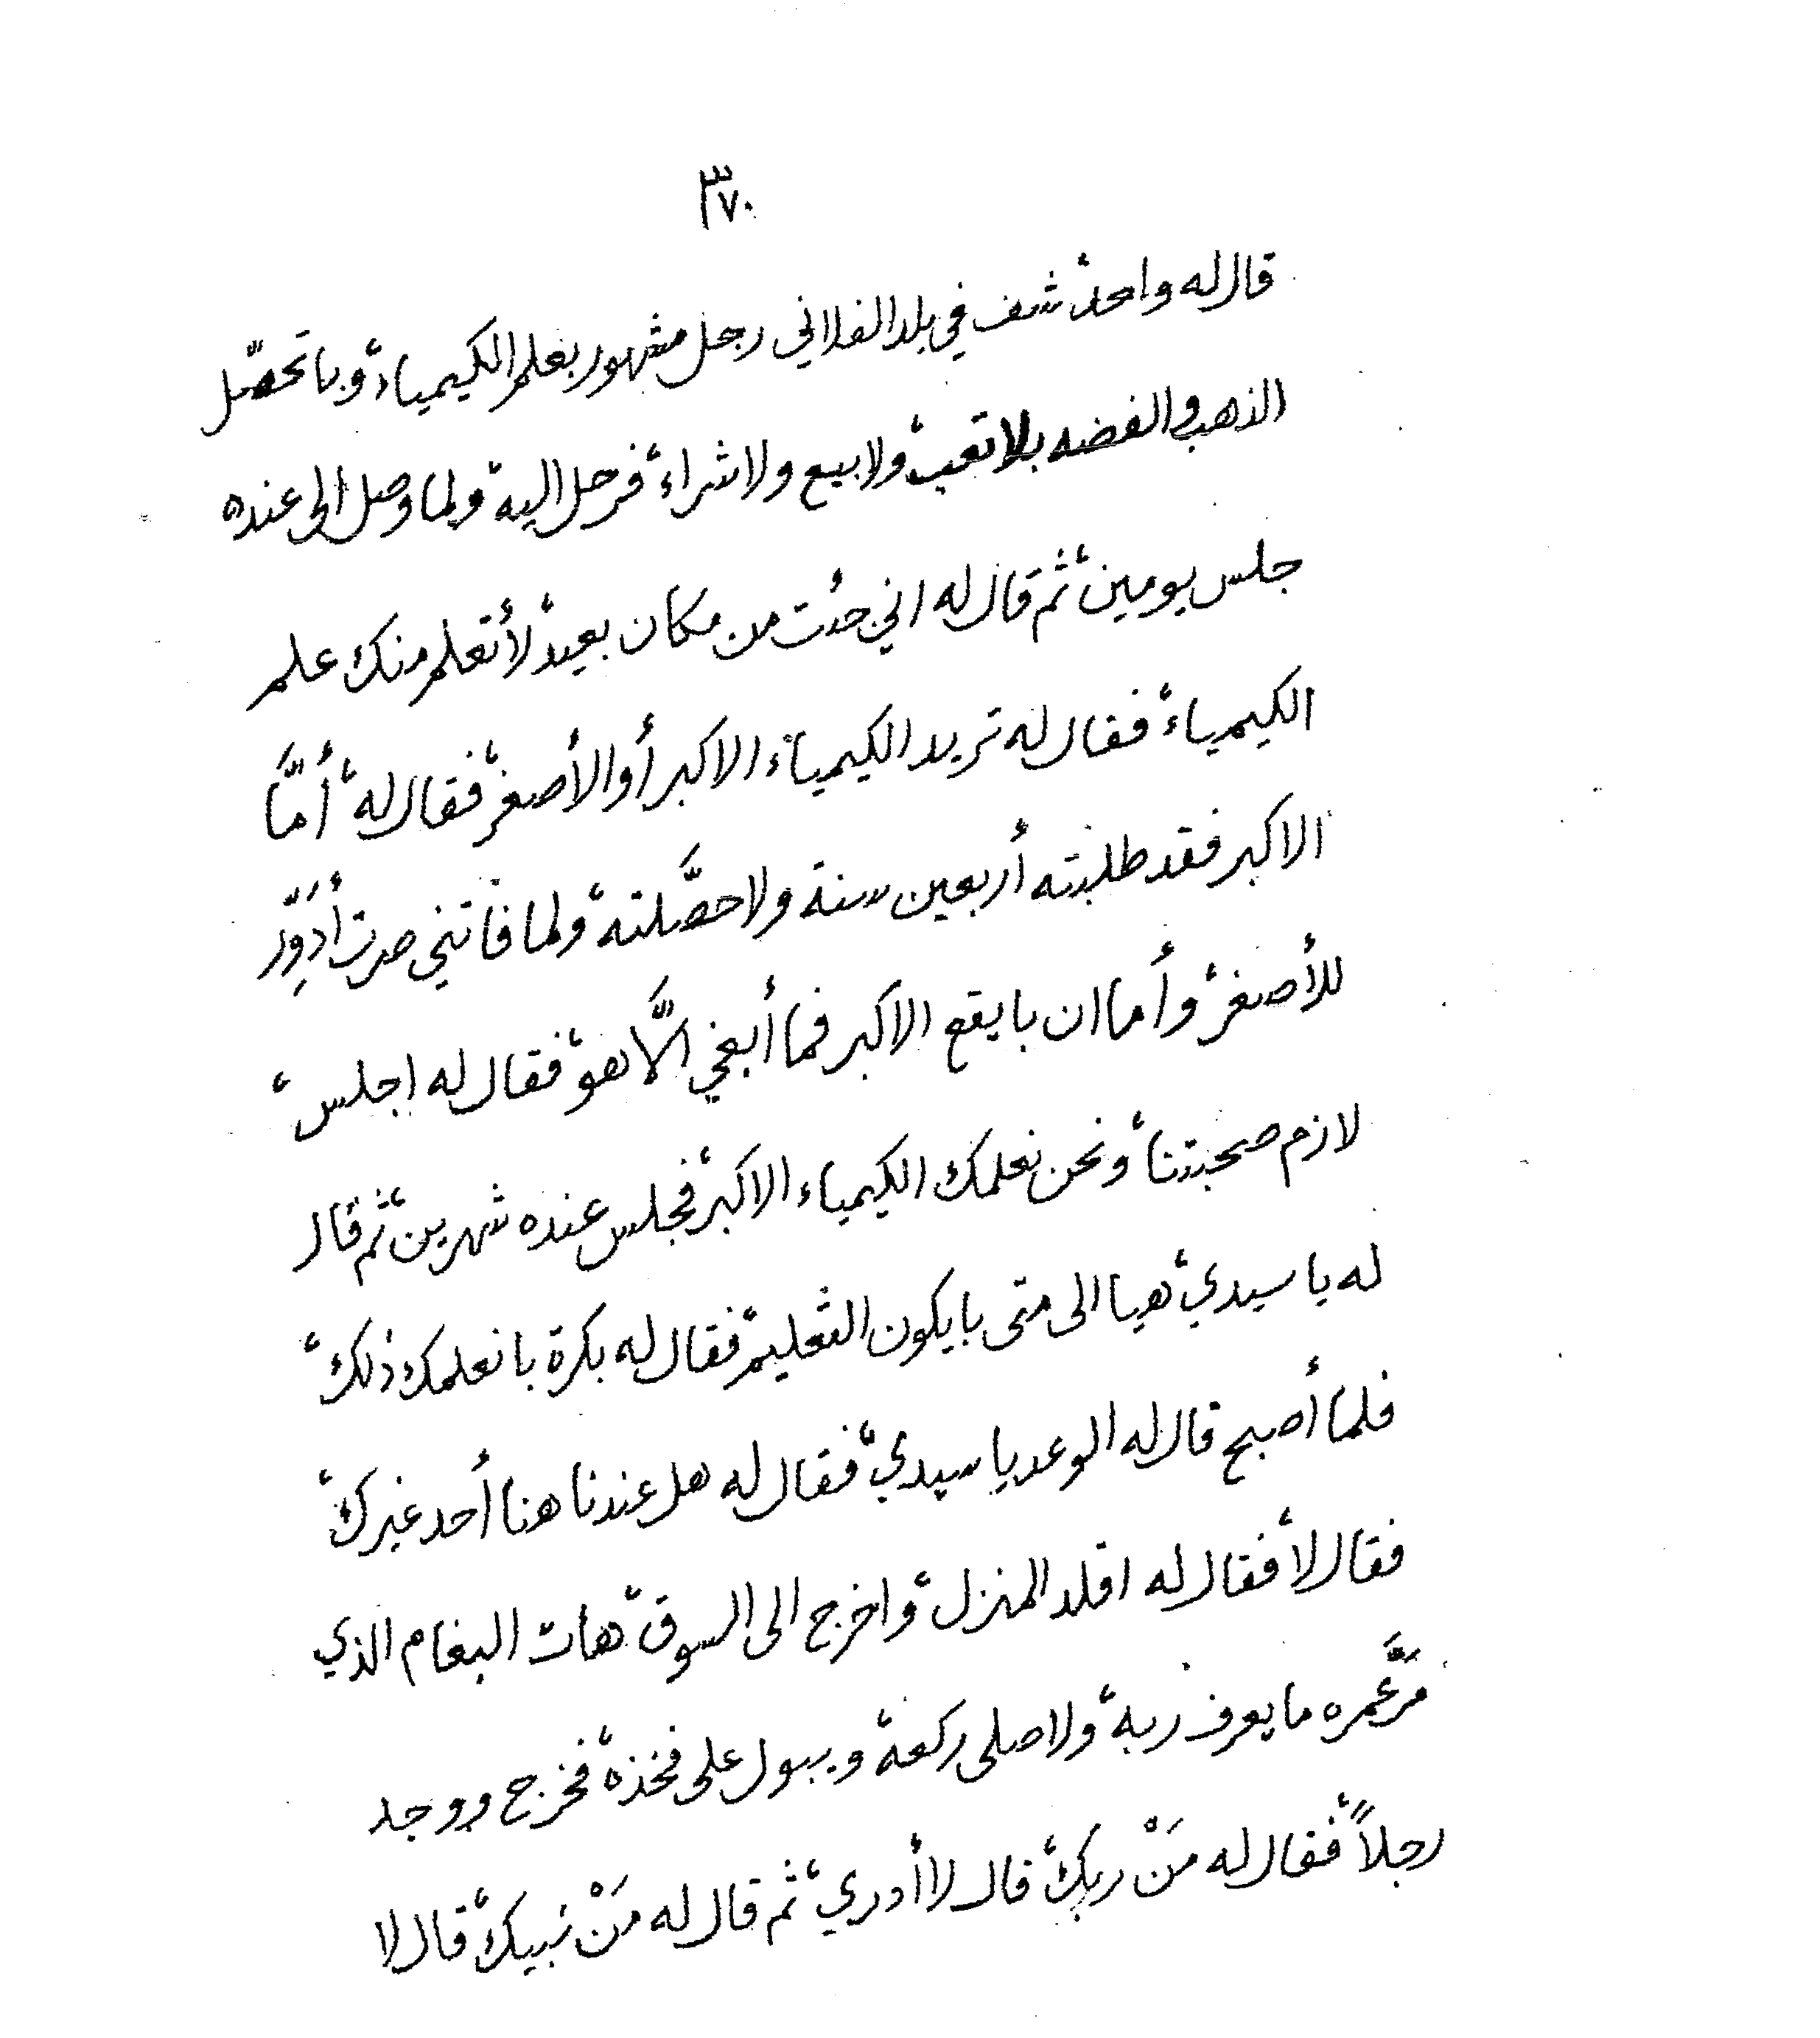 ٣٧٠
قال له واحد، شف في بلد الفلاني رجل مشهور بعلم الكيمياء، وبا تحصّل
الذهب والفضه بلا تعب، ولا بيع ولا شراء، فرحل اليه، ولما وصل الى عنده
جلس يومين، ثم قال له اني جئت من مكان بعيد، لأتعلم منك علم
الكيمياء، فقال له تريد الكيمياء الاكبر أو الأصغر، فقال له، أمَّا
الاكبر فقد طلبته أربعين سنة ولا حصَّلته، ولما فاتني صرت أُدَوِّر
للأصغر، وأما ان با يقع الاكبر فما أبغي الَّا هو، فقال له اجلس،
لازم صحبتنا، ونحن نعلمك الكيمياء الاكبر، فجلس عنده شهرين، ثم قال
له يا سيدي، هيا الى متى با يكون التعليم، فقال له بكرة با نعلمك ذلك،
فلما أصبح قال له الوعد يا سيدي، فقال له هل عندنا هنا أحد غيرك،
فقال لا، فقال له اقلد المنزل، واخرج الى السوق، هات البغام الذي
مَرَّ عمره ما يعرف ربه، ولا صلى ركعة، ويبول على فخذه، فخرج ووجد
رجلاً، فقال له مَنْ ربك، قال لا أدري، ثم قال له مَنْ نبيك، قال لا